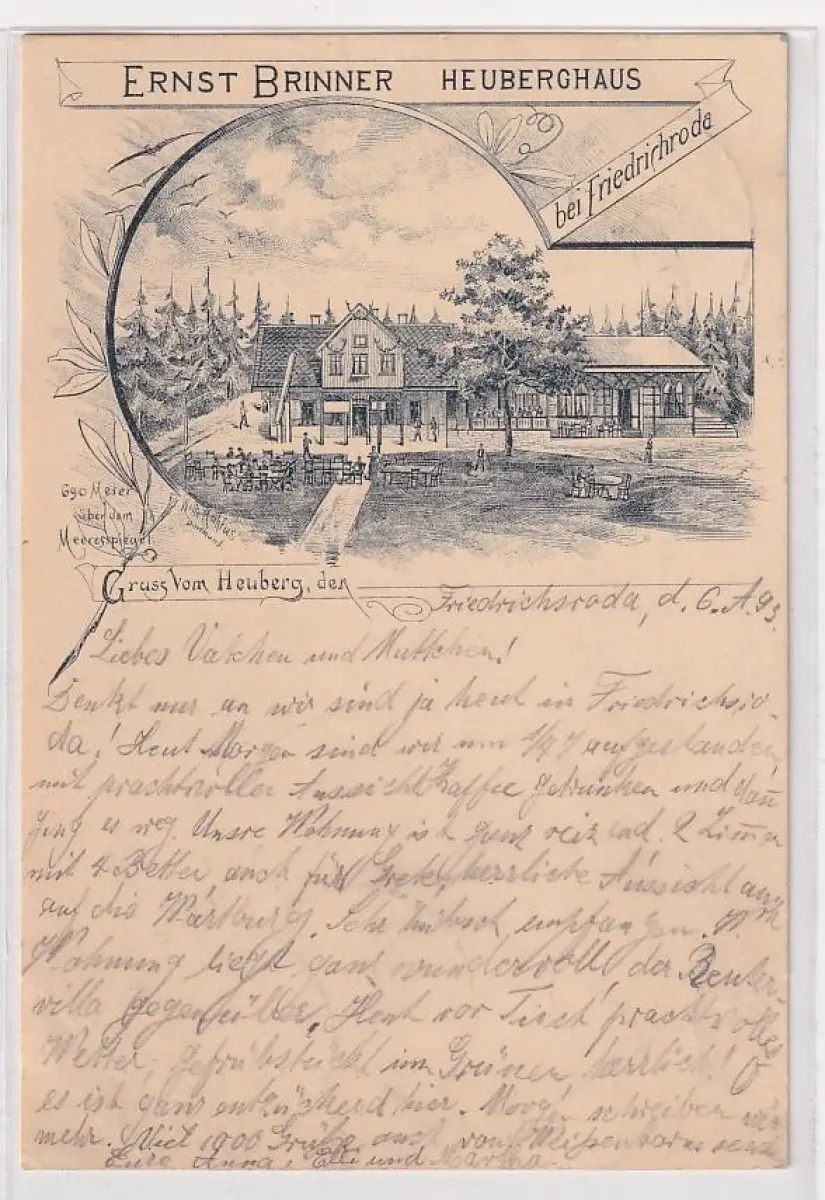 ERNST BRINNER HEUBERGHAUS
bei Friedrichroda
690 Meter
über dem
Meeresspiegel.
Gruss vom Heuberg, den
Friedrichsroda, d. 6. A. 93.
Liebes Vatchen und Muttchen!
Denkt nur an wir sind ja heut in Friedrichsro-
da! Heut Morgen sind wir um 1/2 7 aufgestanden
mit prachtvoller Aussicht Kaffee getrunken und dann
ging es weg. Unsre Wohnung ist ganz reizend. 2 Zimmer
mit 4 Betten, auch für Grete, herrliche Aussicht auch
auf die Wartburg. Sehr hübsch empfangen.
Wohnung liegt ganz wundervoll, der Reuter-
villa gegenüber. Heut vor Tisch prachtvolles
Wetter, gefrühstückt im Grünen, herrlich!
es ist ganz entzückend hier. Morgen schreiben wir
mehr. Viel 1000 Grüße auch von Weißenborns
Eure Anna, Elli und Martha.